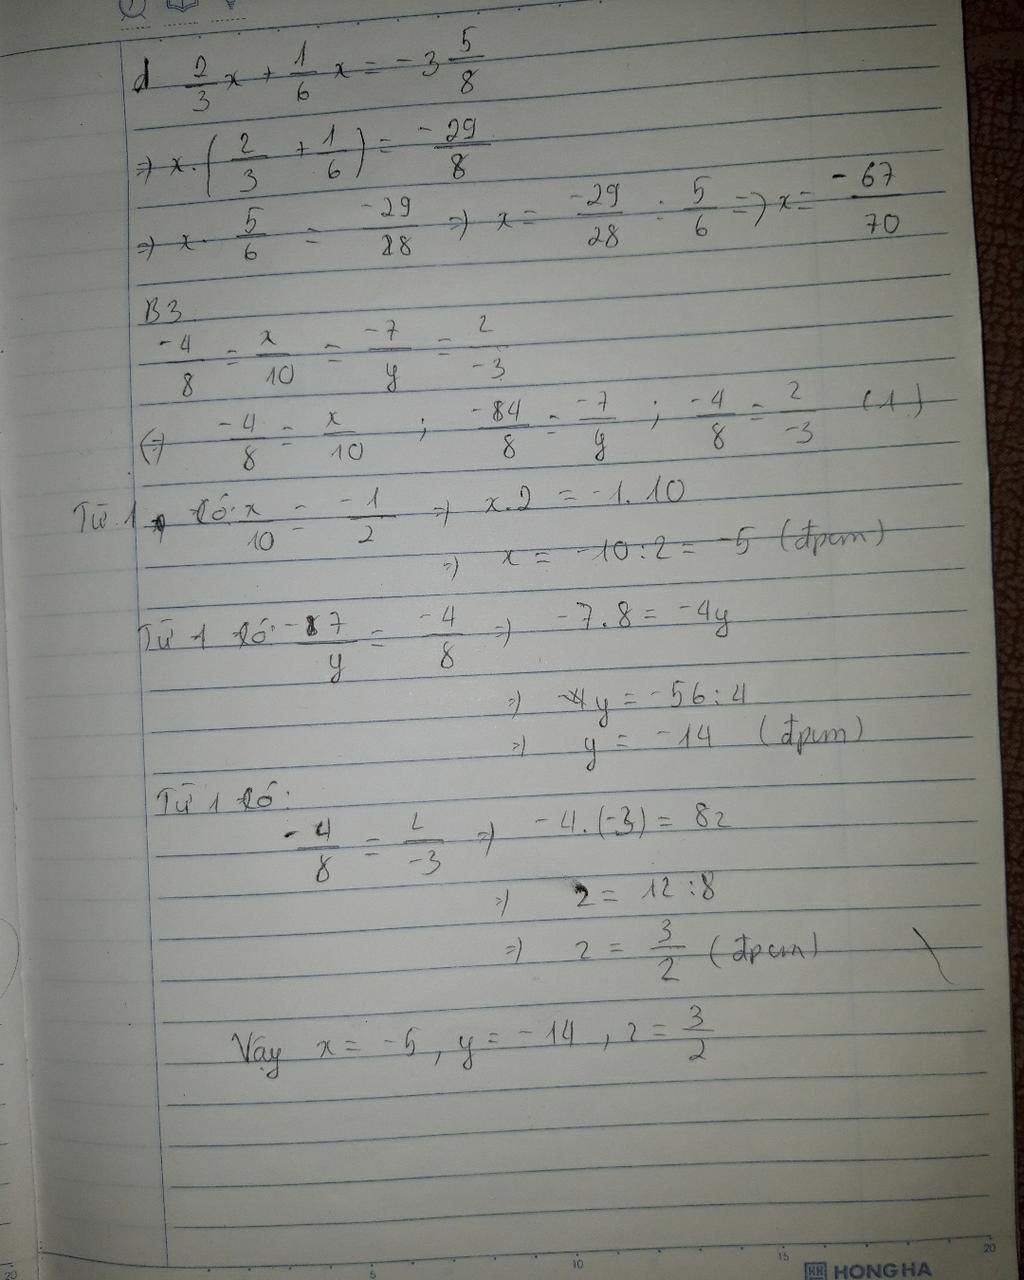 d 2/3 x + 1/6 x = -3 5/8
=> x.(2/3 + 1/6) = -29/8
=> x. 5/6 = -29/28 => x = -29/28 : 5/6 => x = -67/70
B3
-4/8 = x/10 = -7/y = z/-3
(=> -4/8 = x/10 ; -84/8 = -7/y ; -4/8 = z/-3 (1)
Từ 1 có: x/10 = -1/2 => x.2 = -1.10
=> x = -10:2 = -5 (đpcm)
Từ 1 có: -7/y = -4/8 => -7.8 = -4y
=> 4y = -56:4
=> y = -14 (đpcm)
Từ 1 có:
-4/8 = z/-3 => -4.(-3) = 8z
=> z = 12:8
=> z = 3/2 (đpcm)
Vậy x = -5, y = -14, z = 3/2
5 10 15 20
HH HONG HA
20